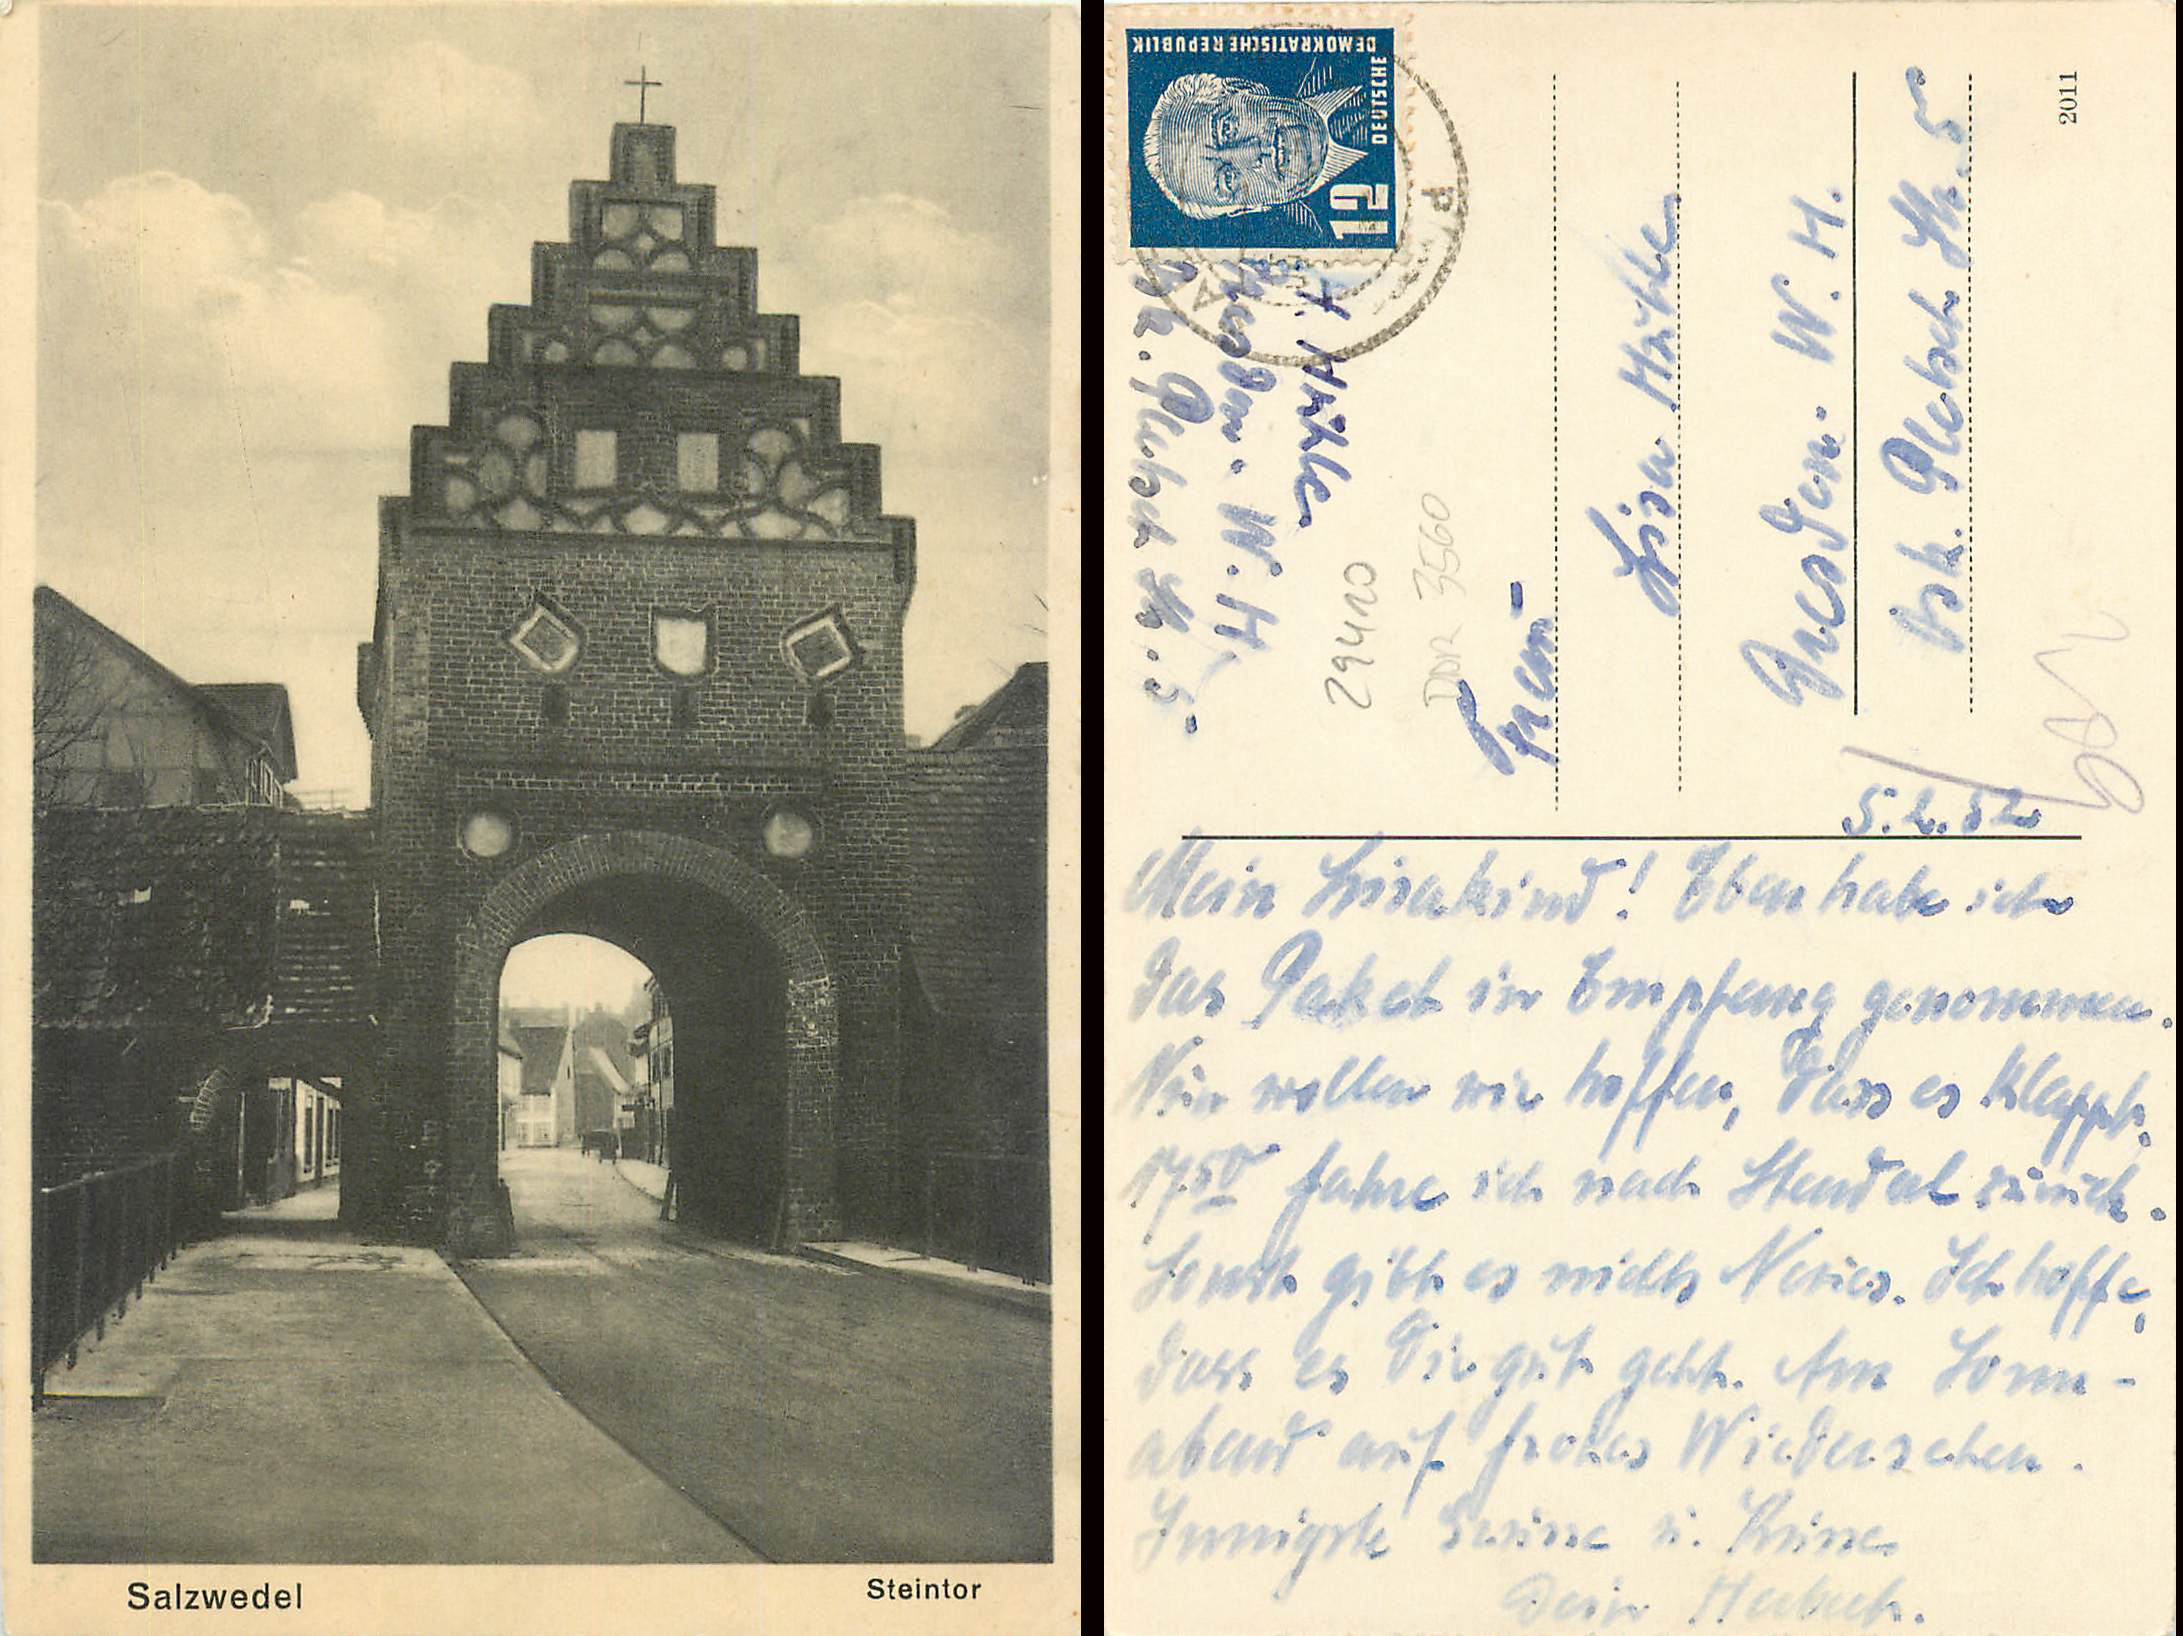 Salzwedel
Steintor
DEUTSCHE
DEMOKRATISCHE REPUBLIK
12
H. Mühle
Dresden. W. H.
Gleisch Str. 5
29410
DDR 3560
Frau
Lisa Mühle
Dresden. W. H.
Str. 5
2011
5.2.52
Mein Lisakind! Eben habe ich
das Paket in Empfang genommen.
Nun wollen wir hoffen, dass es klappt.
17.50 fahre ich nach Stendal zurück.
Sonst gibt es nichts Neues. Ich hoffe,
dass es Dir gut geht. Am Sonn-
abend auf frohes Wiedersehen.
Innigste Grüsse u. Küsse
Dein